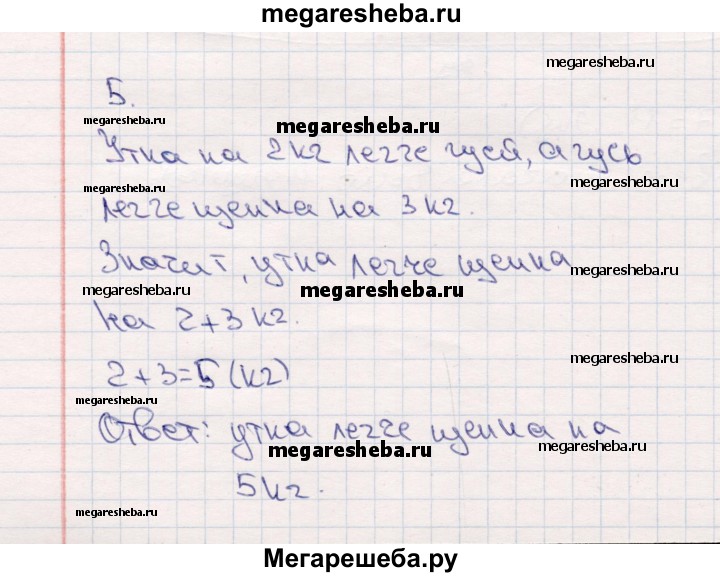 megaresheba.ru
megaresheba.ru
5.
megaresheba.ru
megaresheba.ru
Утка на 2кг легче гусей, а гусь
megaresheba.ru
megaresheba.ru
легче щенка на 3 кг.
Значит, утка легче щенка
megaresheba.ru
megaresheba.ru
megaresheba.ru
на 2+3 кг.
megaresheba.ru
2+3=5 (кг)
megaresheba.ru
Ответ: утка легче щенка на
megaresheba.ru
megaresheba.ru
5кг.
megaresheba.ru
Мегарешеба.ру